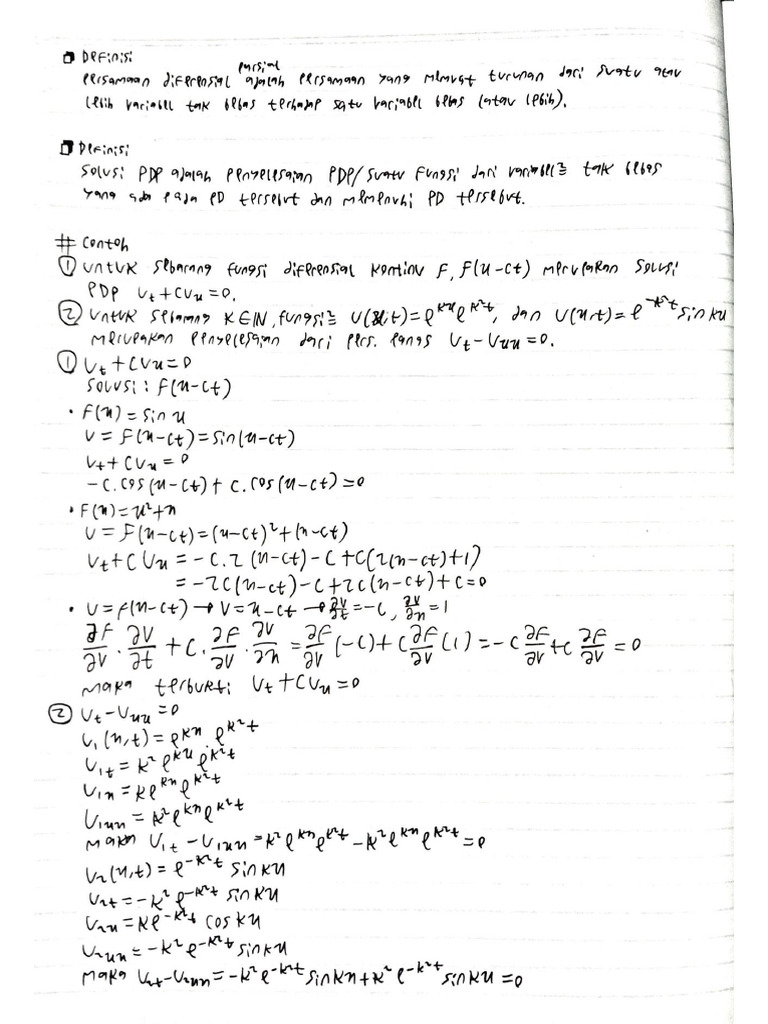 Definisi
Persamaan diferensial parsial adalah persamaan yang memuat turunan dari suatu atau
lebih variabel tak bebas terhadap satu variabel bebas (atau lebih).
Definisi
Solusi PDP adalah penyelesaian PDP/suatu fungsi dari variabel² tak bebas
yang ada pada PD tersebut dan memenuhi PD tersebut.
# Contoh
① Untuk sebarang fungsi diferensial kontinu F, F(x-ct) merupakan solusi
PDP Ut+CUx=0.
② Untuk sebarang K∈N, fungsi² U(x,t)=e^{kx}e^{k²t}, dan U(x,t)=e^{-k²t} sin kx
merupakan penyelesaian dari pers. panas Ut-Uxx=0.
① Ut+CUx=0
Solusi: F(x-ct)
• F(x)=sin x
U=F(x-ct)=sin(x-ct)
Ut+CUx=0
-c.cos(x-ct)+c.cos(x-ct)=0
• F(x)=x²+x
U=F(x-ct)=(x-ct)²+(x-ct)
Ut+CUx=-c.2(x-ct)-c+c(2(x-ct)+1)
=-2c(x-ct)-c+2c(x-ct)+c=0
• U=f(x-ct)→V=x-ct→∂V/∂t=-c, ∂V/∂x=1
∂F/∂V . ∂V/∂t + C . ∂F/∂V . ∂V/∂x = ∂F/∂V (-c) + C ∂F/∂V (1) = -C ∂F/∂V + C ∂F/∂V = 0
Maka terbukti Ut+CUx=0
② Ut-Uxx=0
U₁(x,t)=e^{kx}.e^{k²t}
U₁t=k²e^{kx}e^{k²t}
U₁x=ke^{kx}e^{k²t}
U₁xx=k²e^{kx}e^{k²t}
Maka U₁t-U₁xx=k²e^{kx}e^{k²t}-k²e^{kx}e^{k²t}=0
U₂(x,t)=e^{-k²t} sin kx
U₂t=-k²e^{-k²t} sin kx
U₂x=ke^{-k²t} cos kx
U₂xx=-k²e^{-k²t} sin kx
Maka U₂t-U₂xx=-k²e^{-k²t} sin kx+k²e^{-k²t} sin kx=0